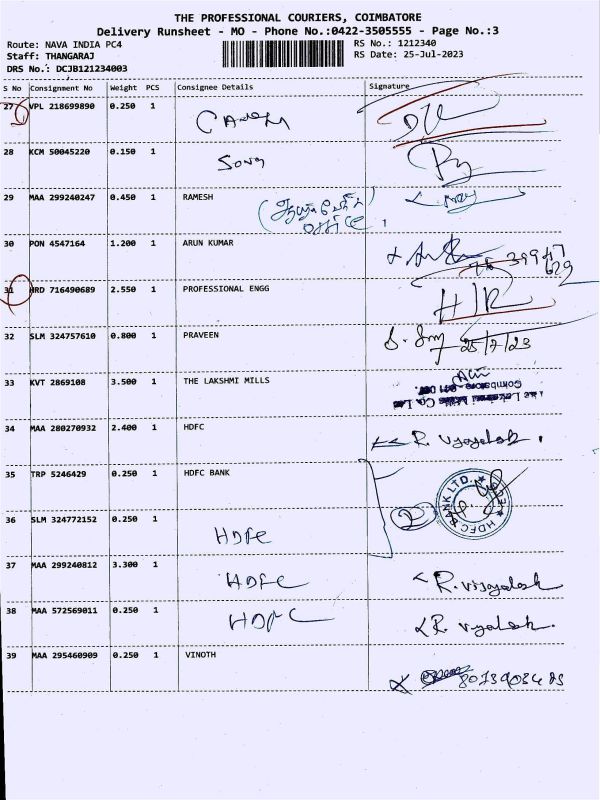 THE PROFESSIONAL COURIERS, COIMBATORE
Delivery Runsheet - MO - Phone No.:0422-3505555 - Page No.:3
Route: NAVA INDIA PC4 RS No.: 1212340
Staff: THANGARAJ RS Date: 25-Jul-2023
DRS No.: DCJB121234003
S No Consignment No Weight PCS Consignee Details Signature
27 VPL 218699890 0.250 1
28 KCM 50045220 0.150 1 Song
29 MAA 299240247 0.450 1 RAMESH
office
30 PON 4547164 1.200 1 ARUN KUMAR
31 HRD 716490689 2.550 1 PROFESSIONAL ENGG HR
32 SLM 324757610 0.800 1 PRAVEEN 25/7/23
33 KVT 2869108 3.500 1 THE LAKSHMI MILLS
34 MAA 280270932 2.400 1 HDFC R. Vijayalak
35 TRP 5246429 0.250 1 HDFC BANK
HDFC BANK LTD.
36 SLM 324772152 0.250 1 HDFC 2
37 MAA 299240812 3.300 1 HDFC R. Vijayalak
38 MAA 572569011 0.250 1 HDFC R. Vyalak.
39 MAA 295460909 0.250 1 VINOTH